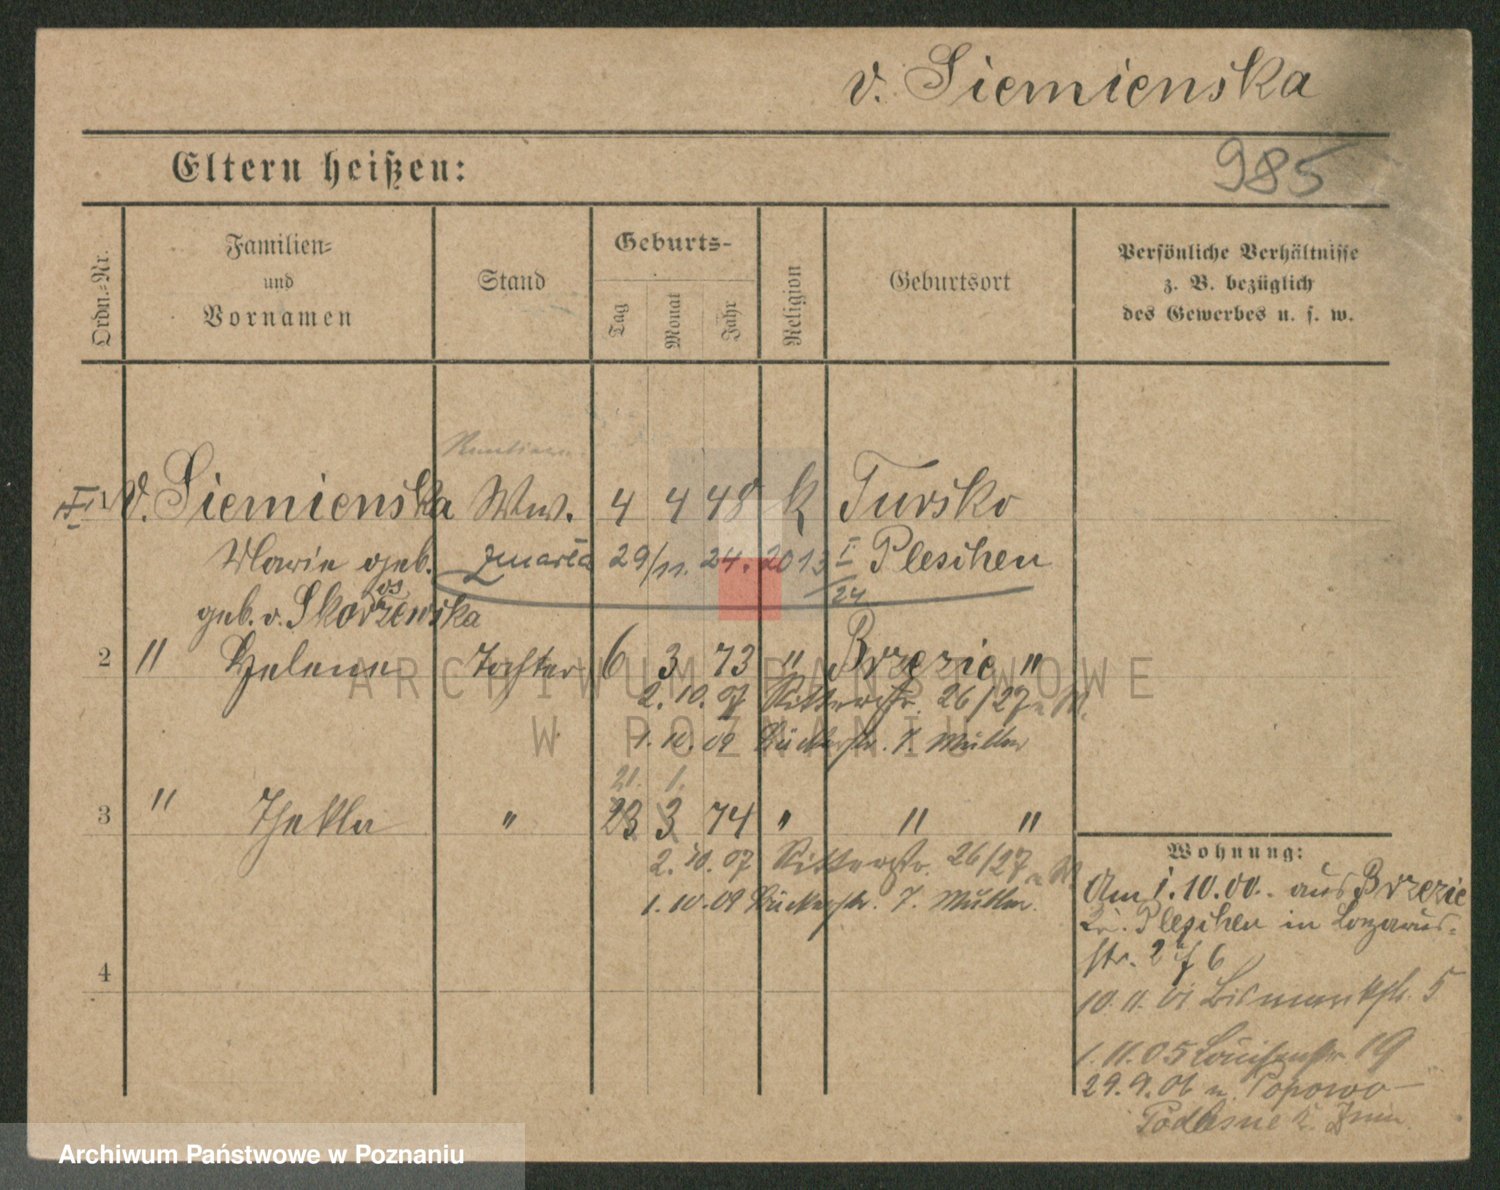 v. Siemienska
985
Eltern heißen:
Ordn.-Nr.
Familien-
und
Vornamen
Stand
Geburts-
Tag
Monat
Jahr
Religion
Geburtsort
Persönliche Verhältnisse
z. B. bezüglich
des Gewerbes u. s. w.
1 v. Siemienska Ww. 4 4 48 k Tursko
Marie geb. zmarła 29/11. 24. 2013 I/24 Pleschen
geb. v. Skórzewska
2 " Helene Tochter 6 3 73 " Brzezie "
2. 10. 07 Ritterstr. 26/27
1. 10. 09 Bäckerstr. 7. Müller
21. 1.
3 " Thekla " 23 3 74 " " "
2. 10. 07 Ritterstr. 26/27
1. 10. 09 Bäckerstr. 7. Müller.
4
Wohnung:
Am 1. 10. 00. aus Brzezie
Kr. Pleschen in Lazarus-
str. 2 6
10. 11. 01 Bismarckstr. 5
1. 11. 05 Louisenstr 19
29. 9. 06 n. Popowo-
Podlesne K. Znin.
ARCHIWUM PAŃSTWOWE
W POZNANIU
Archiwum Państwowe w Poznaniu